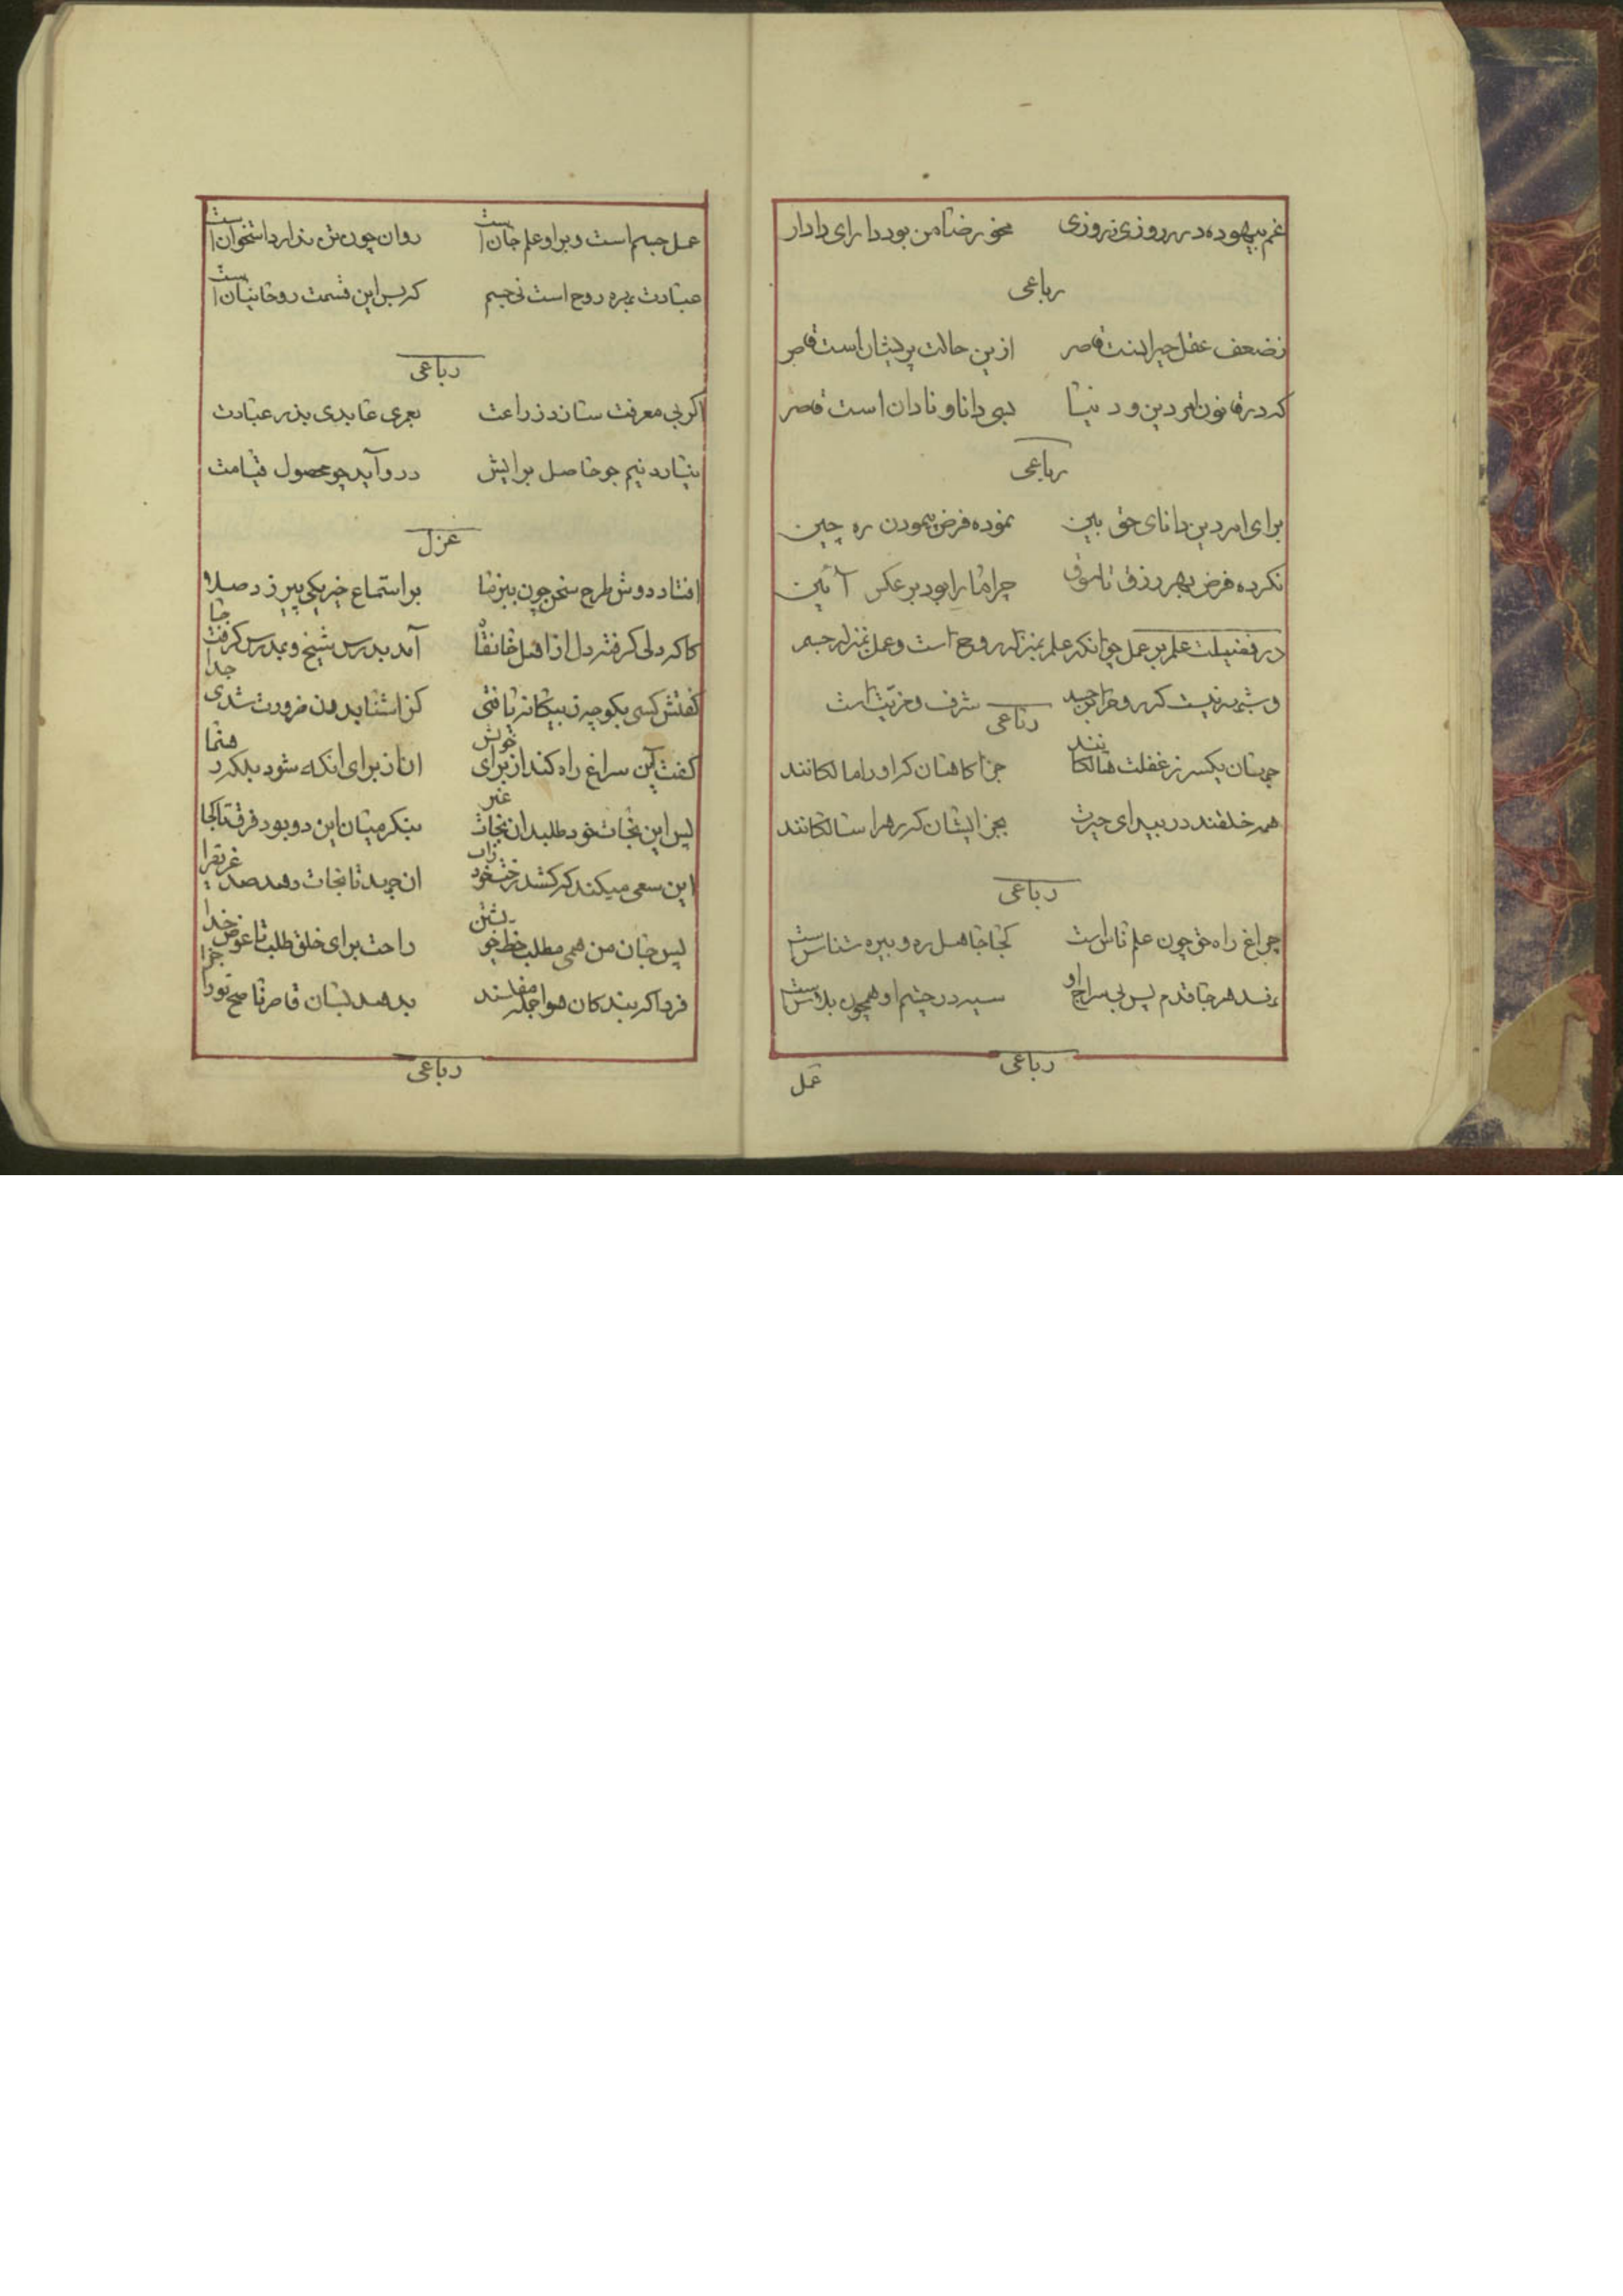 غم بیهوده در روزی نروزی مخور ضامن بود دارای دادار
رباعی
زضعف عقل حیرانست قاصر ازین حالت پریشان است قاصر
که در قانون امر دین و دنیا بسی دانا و نادان است قاصر
رباعی
برای امر دین دانای حق بین نموده فرض پیمودن ره چین
نکرده فرض بهر رزق تا سوق چرا ما را بود بر عکس آئین
در فضیلت علم بر عمل چرانکه علم بمنزله روح است و عمل بمنزله جسم
و شبهه نیست که روح را بر جسد شرف و مزیت است
رباعی
جهان یکسر ز غفلت هالکانند جز اکاهان که او را مالکانند
همه خلقند در بیدای حیرت بجز ایشان که رهرا سالکانند
رباعی
چراغ راه حق چون علم ناس است کجا جاهل ره و بیره شناس است
نهد هر جا قدم پس بی سراج او سیه در چشم او همچون پلاس است
رباعی
عمل
عمل جسم است و براو علم جان است روان چون تن ندارد استخوان است
عبادت بهره روح است نی جسم که بس این قسمت روحانیان است
رباعی
اکر بی معرفت سازد زراعت بعمری عابدی بذر عبادت
نیارد نیم جو حاصل برایش درو آید چو محصول قیامت
غزل
افتاد دوش طرح سخن چون ببزم ما بر استماع خیر یکی پیر زد صلا
کا که دلی کرفته دل از اهل خانقاه آمد بدرس شیخ و بمدرس کرفت جا
کفتش کسی بکو چه ز بیکانه یافتی کز اشنا بدون ضرورت شدی جدا
کفت این سراغ راه کند از برای خویش ان از برای انکه شود بلکه رهنما
پس این نجات خود طلبد ان نجات غیر بنکر میان این دو بود فرق تا کجا
این سعی میکند که کشد رخت خود زاب ان جهد تا نجات دهد صد غریق را
پس جان من همی مطلب حظ خویشتن راحت برای خلق طلب تا عوض خدا
فردا که بندکان هوا جمله مفلسند بدهد لسان قاصر ناصح تو را جزا
رباعی